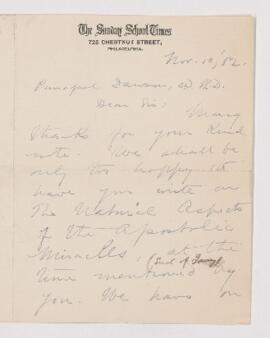 The Sunday School Times
725 CHESTNUT STREET,
PHILADELPHIA.
Nov. 10, '82.
Principal Dawson,
Dear Sir: Many
thanks for your kind
note. We shall be
only too happy to
have you write on
The Natural Aspects
of the Apostolic
Miracles, at the
time mentioned by
you. We have on